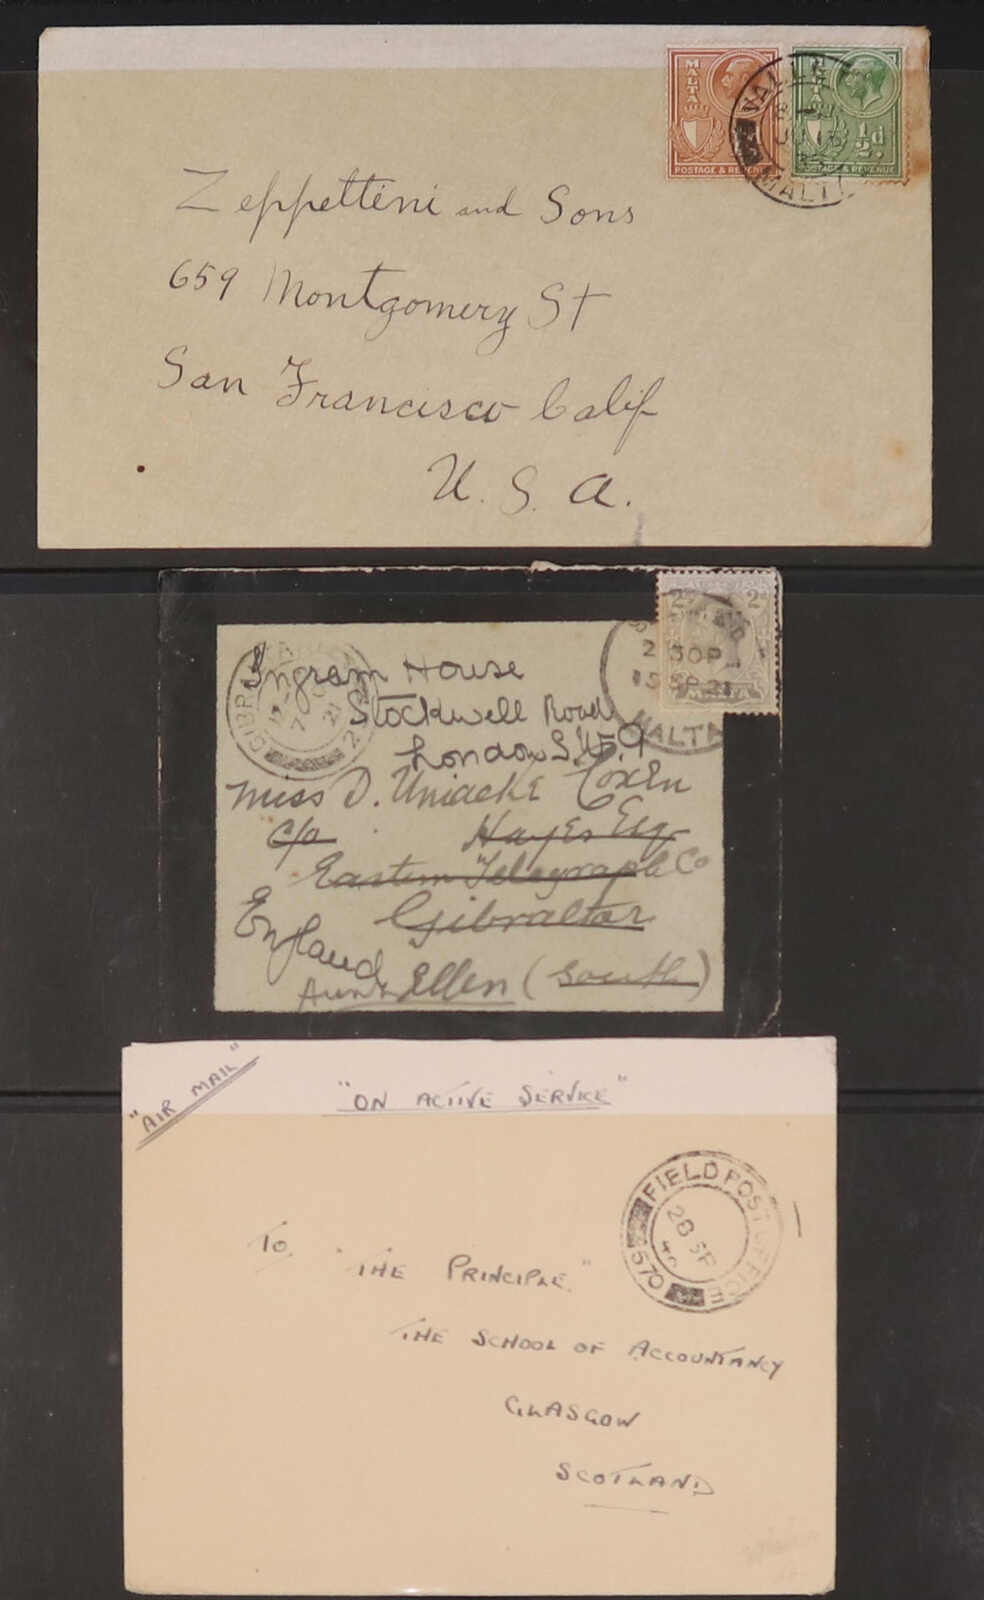 MALTA
POSTAGE & REVENUE
MALTA
½d
POSTAGE & REVENUE
VALLETTA
MALTA
Zeppettini and Sons
659 Montgomery St
San Francisco Calif
U. S. A.
2d 2d
MALTA
2 30P
15 SP 21
MALTA
GIBRALTAR
21
Ingram House
Stockwell Road
London S.W.9
Miss D. Uniacke Coxen
c/o Hayes Esq
Eastern Telegraph Co
Gibraltar
England
Aunt Ellen (South)
"AIR MAIL"
"ON ACTIVE SERVICE"
FIELD POST OFFICE
28 SP
570
To "THE PRINCIPLE"
THE SCHOOL OF ACCOUNTANCY
GLASGOW
SCOTLAND